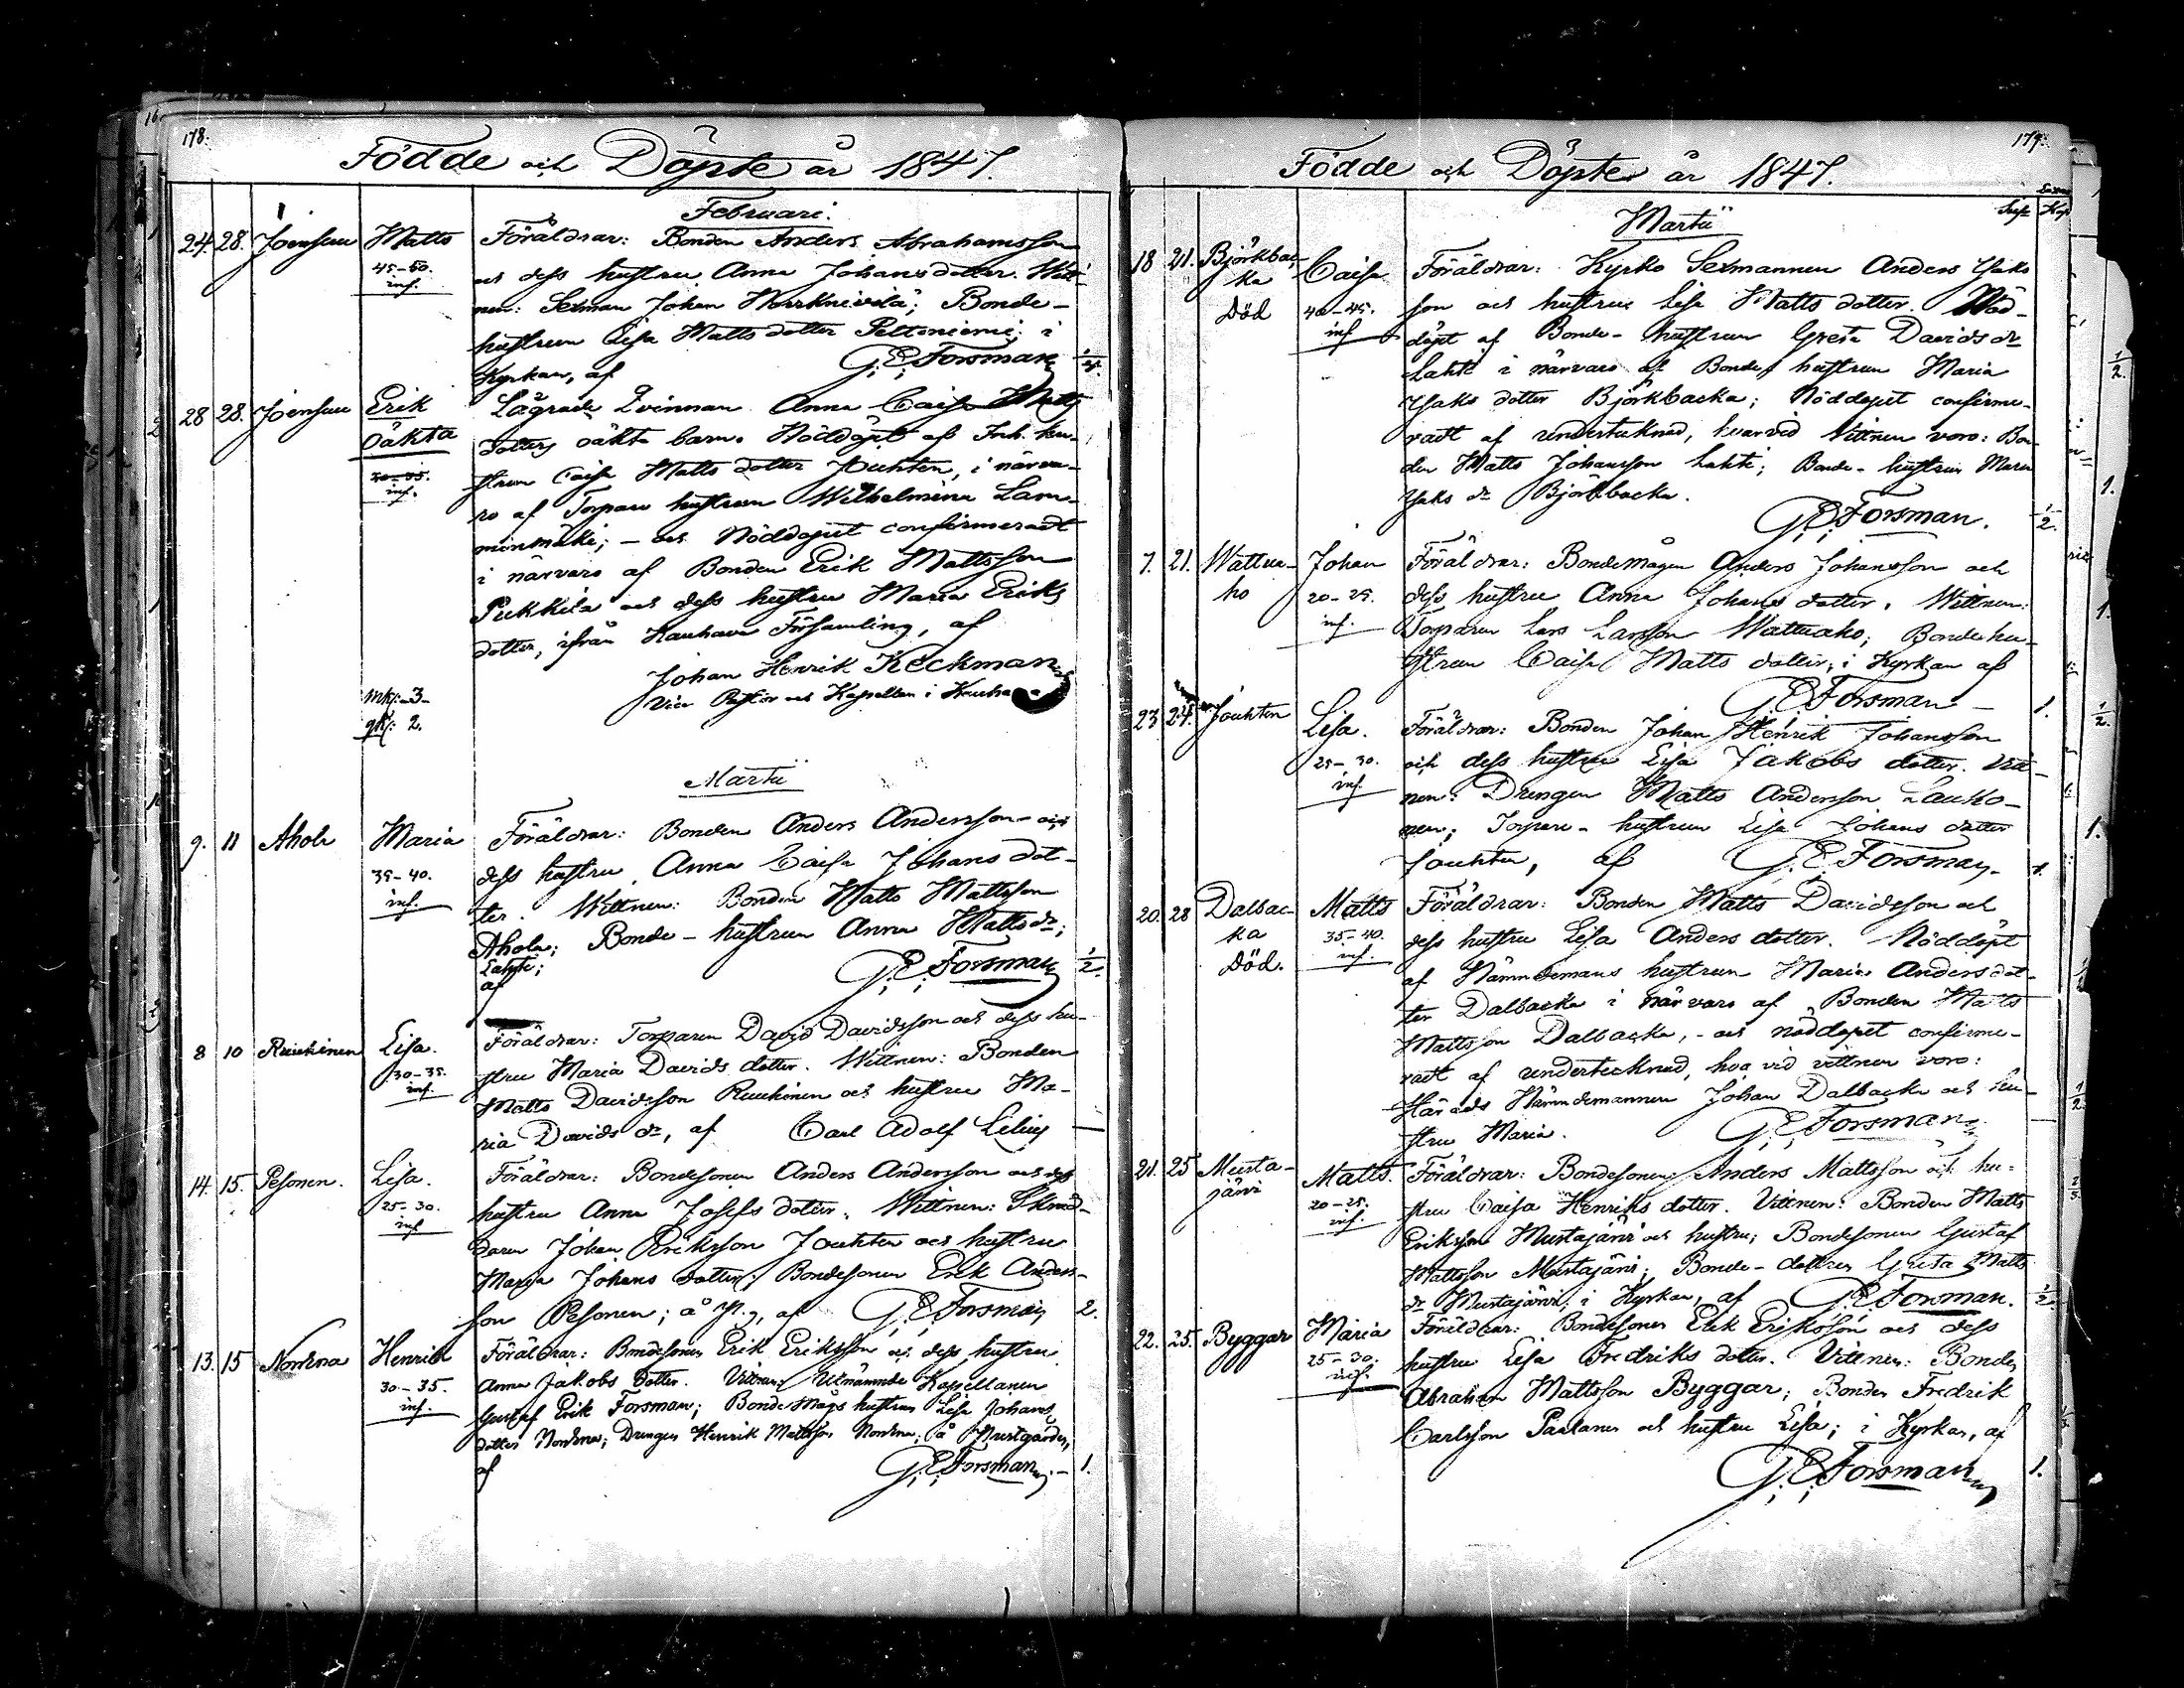 178.
Födde och Döpte år 1847.
Februari.
24. 28. Joensuu Matts Föräldrar: Bonden Anders Abrahamsson
45-50. och dess hustru Anna Johansdotter. Witt-
inf. nen: Sexman Johan Horrknivilä; Bonde-
hustrun Lisa Matts dotter Peltoniemi; i
Kyrkan, af G. E. Forsman
28 28. Joensuu Erik Lägrade Qvinnan Anna Caisa Matts
Oäkta dotters oäkta barn. Nöddöpt af Inh. hu-
30-35. strun Caisa Matts dotter Jouhten, i närva-
inf. ro af Torpare hustrun Wilhelmina Lam-
minmäki; - och Nöddopet confirmeradt
i närvaro af Bonden Erik Mattsson
Pukkila och dess hustru Maria Eriks
dotter, ifrån Kauhava Församling, af
Johan Henrik Keckman
Vice Pastor och Kapellan i Kauhava
mk: 3-
qk: 2.
Martii
9. 11 Ahola Maria Föräldrar: Bonden Anders Andersson och
35-40. dess hustru Anna Caisa Johans dot-
inf. ter. Wittnen: Bonden Matts Mattsson
Ahola; Bonde-hustrun Anna Matts dr;
af G. E. Forsman 1/2.
8 10 Ruuhinen Lisa. Föräldrar: Torparen David Davidsson och dess hu-
30-35. stru Maria Davids dotter. Wittnen: Bonden
inf. Matts Davidsson Ruuhinen och hustru Ma-
ria Davids dr, af Carl Adolf Lilius
14. 15. Pesonen. Lisa. Föräldrar: Bondesonen Anders Andersson och dess
25-30. hustru Anna Josefs dotter. Wittnen: Skräd-
inf daren Johan Eriksson Jouhten och hustru
Maria Johans dotter; Bondesonen Erik Anders-
son Pesonen; å Pg, af G. E. Forsman 2.
13. 15 Norkna Henrik Föräldrar: Bondesonen Erik Eriksson och dess hustru
30-35. Anna Jakobs dotter. Vittnen: Utnämnde Kapellanen
inf. Gustaf Erik Forsman; Bonde Mågs hustrun Lisa Johans
dotter Norkna; Drengen Henrik Mattsson Norkna; å Prestgården,
af G. E. Forsman. 1.
179.
Födde och Döpte år 1847.
Martii
18 21. Björkbac- Caisa Föräldrar: Kyrko Sexmannen Anders Isaks
ka son och hustru Lisa Matts dotter. Nöd-
Död 40-45. döpt af Bonde-hustrun Greta Davids dr
inf Lahti i närvaro af Bonde hustrun Maria
Isaks dotter Björkbacka; Nöddopet confirme-
radt af undertecknad, hvarvid Vittnen voro: Bon-
den Matts Johansson Lahti; Bonde-hustrun Maria
Isaks dr Björkbacka.
G. E. Forsman. 1/2.
7. 21. Wattua- Johan Föräldrar: Bondemågen Anders Johansson och
ho 20-25. dess hustru Anna Johans dotter. Wittnen:
inf. Torparen Lars Larsson Wattuaho; Bondehu-
strun Caisa Matts dotter; i Kyrkan af
G. E. Forsman 1.
23 24. Jouhten Lisa. Föräldrar: Bonden Johan Henrik Johansson
25-30. och dess hustru Lisa Jakobs dotter. Vitt-
inf. nen: Drengen Matts Andersson Lauko-
nen; Torpare-hustrun Lisa Johans dotter
Jouhten, af G. E. Forsman. 1.
20. 28 Dalbac- Matts Föräldrar: Bonden Matts Davidsson och
ka 35-40. dess hustru Lisa Anders dotter. Nöddöpt
Död. inf. af Nämndemans hustrun Maria Anders dot-
ter Dalbacka i närvaro af Bonden Matts
Mattsson Dalbacka, - och nöddopet confirme-
radt af undertecknad, hvarvid vittnen voro:
Härads Nämndemannen Johan Dalbacka och hu-
stru Maria. G. E. Forsman
21. 25 Musta- Matts. Föräldrar: Bondesonen Anders Mattsson och hu-
järvi 20-25. stru Caisa Henriks dotter. Vittnen: Bonden Matts
inf. Eriksson Mustajärvi och hustru; Bondesonen Gustaf
Mattsson Mustajärvi; Bonde-dottren Greta Matts
dr Mustajärvi; i Kyrkan, af G. E. Forsman. 1/2
22. 25. Byggar Maria Föräldrar: Bondesonen Erik Eriksson och dess
25-30. hustru Lisa Fredriks dotter. Vittnen: Bonden
inf. Abraham Mattsson Byggar; Bonden Fredrik
Carlsson Paalanen och hustru Lisa; i Kyrkan, af
G. E. Forsman 1.